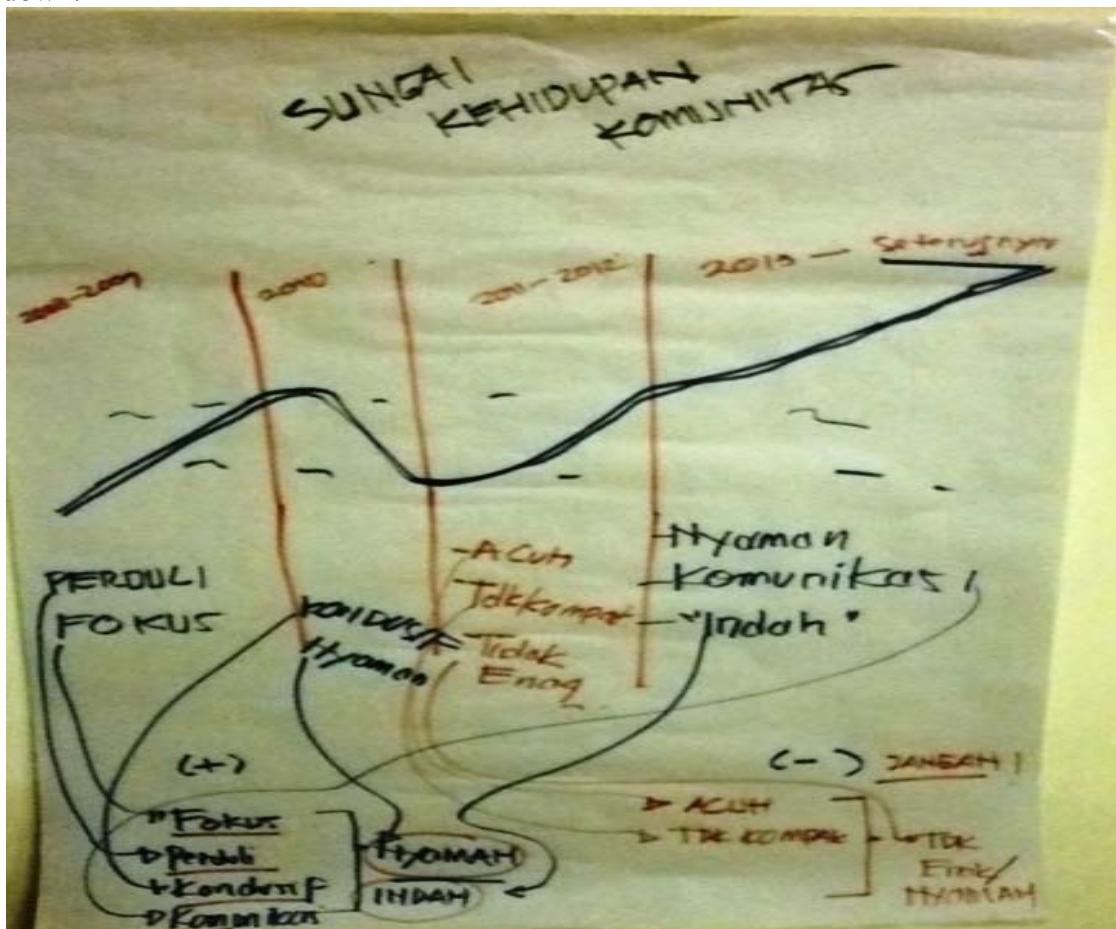 SUNGAI
KEHIDUPAN
KOMUNITAS
2010
2011-2012
2013 - Seterusnya
PERDULI
FOKUS
KONDUSIF
Nyaman
- ACUH
Tdk Kompak
- Tidak
Enaq
- Nyaman
- Komunikasi
- "Indah"
(+)
Fokus
Perduli
Kondusif
Komunikasi
NYAMAN
INDAH
(-) JANGAN!
ACUH
TDK KOMPAK
TDK
Enak/
NYAMAN